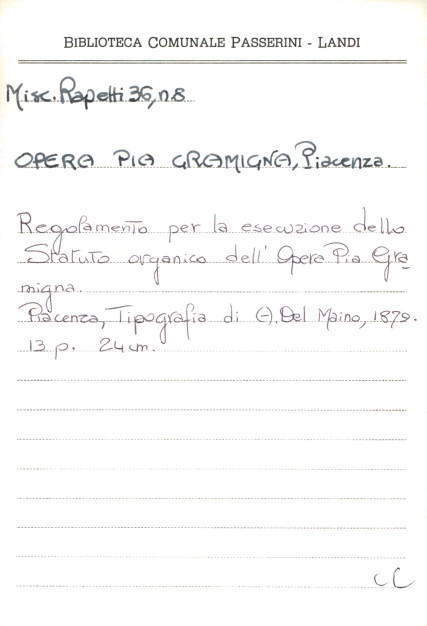 BIBLIOTECA COMUNALE PASSERINI - LANDI
Misc. Rapetti 36, n.8
OPERA PIA GRAMIGNA, Piacenza.
Regolamento per la esecuzione dello
Statuto organico dell' Opera Pia Gra
migna.
Piacenza, Tipografia di A. Del Maino, 1879.
13 p. 24 cm.
CC